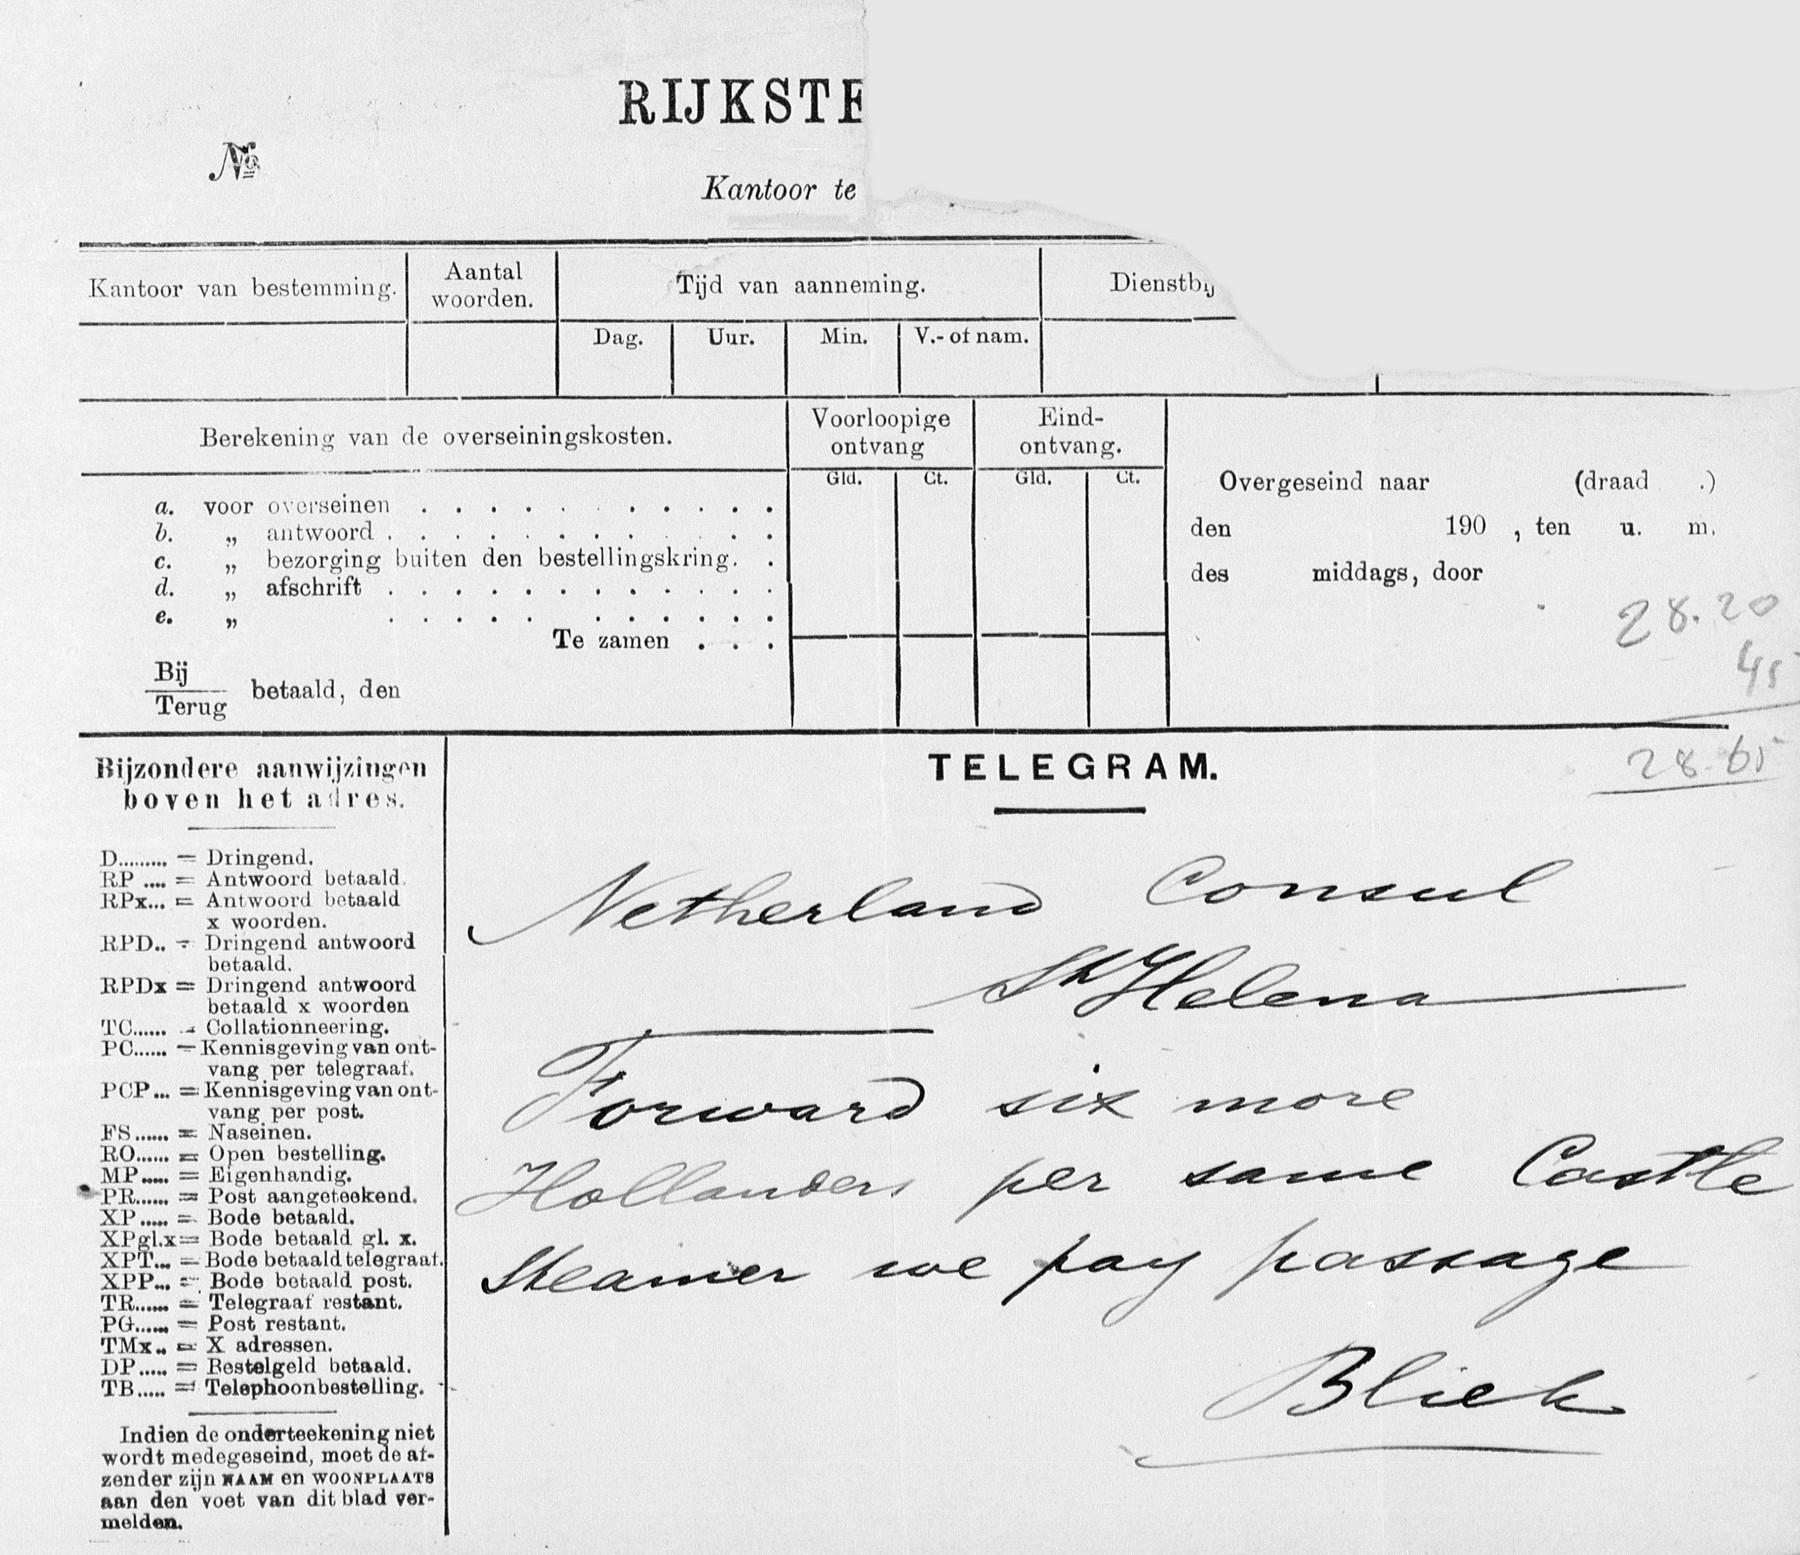 RIJKSTE
№
Kantoor te
Kantoor van bestemming.
Aantal
woorden.
Tijd van aanneming.
Dienstbij
Dag.
Uur.
Min.
V.- of nam.
Berekening van de overseiningskosten.
Voorloopige
ontvang
Eind-
ontvang.
Gld.
Ct.
Gld.
Ct.
a. voor overseinen . . . . . . . . . . .
b. „ antwoord . . . . . . . . . . . .
c. „ bezorging buiten den bestellingskring. .
d. „ afschrift . . . . . . . . . . . .
e. „ . . . . . . . . . . . .
Te zamen . . .
Bij
Terug
betaald, den
Overgeseind naar (draad .)
den 190 , ten u. m.
des middags, door
28.20
45
28.65
Bijzondere aanwijzingen
boven het adres.
D......... = Dringend.
RP .... = Antwoord betaald.
RPx... = Antwoord betaald
x woorden.
RPD.. = Dringend antwoord
betaald.
RPDx = Dringend antwoord
betaald x woorden
TC...... = Collationneering.
PC...... = Kennisgeving van ont-
vang per telegraaf.
PCP... = Kennisgeving van ont-
vang per post.
FS...... = Naseinen.
RO...... = Open bestelling.
MP..... = Eigenhandig.
PR...... = Post aangeteekend.
XP..... = Bode betaald.
XPgl.x= Bode betaald gl. x.
XPT... = Bode betaald telegraaf.
XPP... = Bode betaald post.
TR...... = Telegraaf restant.
PG...... = Post restant.
TMx.. = X adressen.
DP..... = Bestelgeld betaald.
TB..... = Telephoonbestelling.
Indien de onderteekening niet
wordt medegeseind, moet de af-
zender zijn NAAM en WOONPLAATS
aan den voet van dit blad ver-
melden.
TELEGRAM.
Netherland Consul
St Helena
Forward six more
Hollanders per same Castle
Steamer we pay passage
Bliek